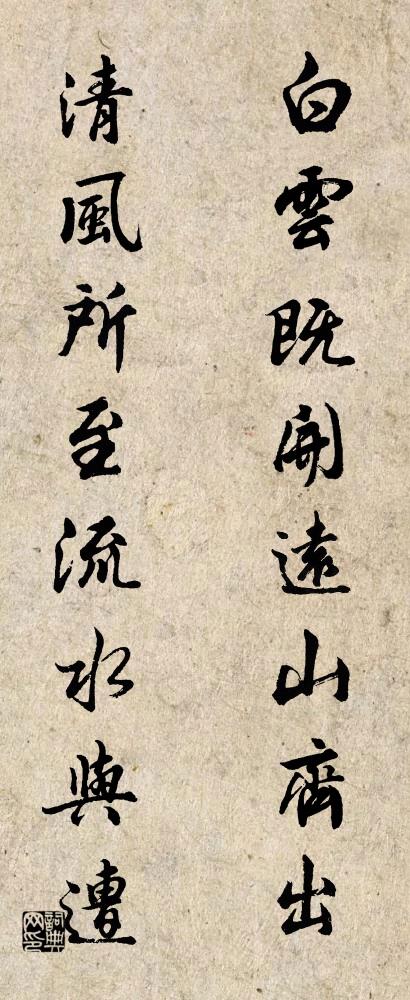 白雲既開遠山齊出
清風所至流水與遭
詞典网印